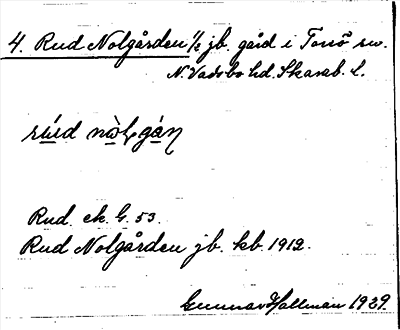 4. Rud Nolgården 1/2 jb. gård i Torsö sn.
N. Vadsbo hd. Skarab. l.
rúd nòlgán
Rud. ek. b. 53.
Rud Nolgården jb. kb. 1912.
Gunnar Hallman 1929.